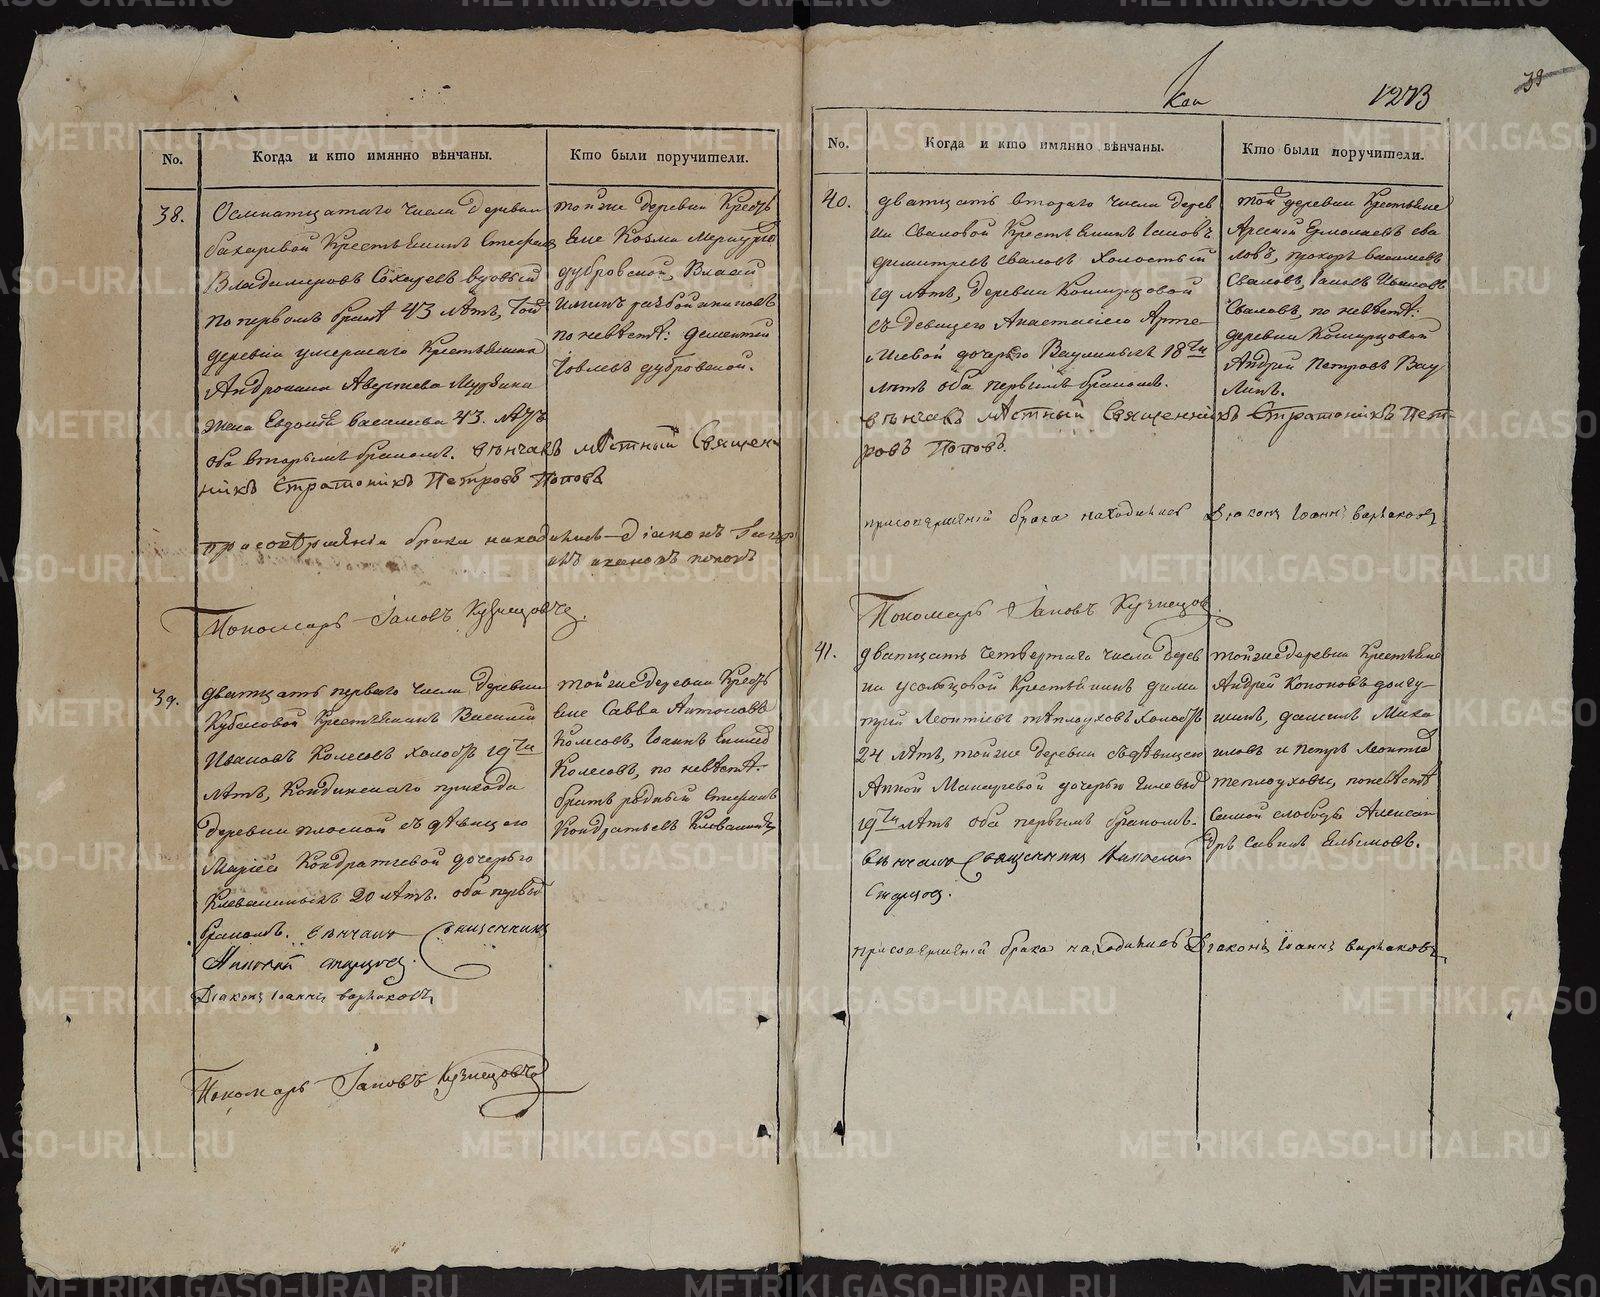 1273
No.
Когда и кто имянно вѣнчаны.
Кто были поручители.
38.
Осмнатцатаго числа деревни
бахаревой Крестьянинъ Стефанъ
Владимировъ вдовый
по первомъ бракѣ 43 лѣтъ, той
деревни умершаго Крестьянина
Андроника
жена Евдокія васильева 43. лѣтъ
оба вторымъ бракомъ. вѣнчалъ мѣстный Священ
никъ Стратоникъ Петровъ Поповъ
тойже деревни Кресть
яне Козма Меркурьевъ
дубровской, Власій
по невѣстѣ: дементій
Іовлевъ дубровской.
при совершеніи брака находились діаконъ
Пономарь Іаковъ Кузнецовъ.
39.
дватцать перваго числа деревни
Кубасовой Крестьянинъ Василій
Ивановъ Колесовъ холостъ 19ти
лѣтъ, Кондинскаго прихода
деревни плоской съ дѣвицею
Маріей Кондратьевой дочерью
Клеваниныхъ 20 лѣтъ. оба первымъ
бракомъ. вѣнчалъ Священникъ
Николай Старцовъ.
Діаконъ Іоаннъ варлаковъ
Пономарь Іаковъ Кузнецовъ
тойже деревни Кресть
яне Савва Антоновъ
Колесовъ, Іоаннъ
Колесовъ, по невѣстѣ.
братъ родный Стефанъ
Кондратьевъ Клеванинъ
No.
Когда и кто имянно вѣнчаны.
Кто были поручители.
40.
дватцать втораго числа дерев
ни Сваловой Крестьянинъ Іаковъ
димитріевъ Сваловъ холостый
19 лѣтъ, деревни
съ девицею Анастасіею Арте
мьевой дочерью Ваулиныхъ 18ти
лѣтъ оба первымъ бракомъ.
вѣнчалъ мѣстный Священникъ Стратоникъ Пет
ровъ Поповъ.
той деревни Крестьяне
Арсеній Ермолаевъ сва
ловъ, прохоръ василіевъ
Сваловъ, Іаковъ
Сваловъ, по невѣстѣ:
деревни
Андрей Петровъ Вау
линъ.
при совершеніи брака находились Діаконъ Іоаннъ варлаковъ
Пономарь Іаковъ Кузнецовъ.
41.
дватцать четвертаго числа дерев
ни усольцовой Крестьянинъ дими
трій Леонтіевъ тѣплоуховъ холостъ
24 лѣтъ, тойже деревни съ дѣвицею
Анной Макарьевой дочерью
19ти лѣтъ оба первымъ бракомъ.
вѣнчалъ Священникъ Николай
Старцовъ.
тойже деревни Крестьяне
Андрей Кононовъ долгу
шинъ, даніилъ Миха
иловъ и петръ Леонтіевъ
теплоуховы, по невѣстѣ
самой слободы Алексан
дръ савинъ
при совершеніи брака находились Діаконъ Іоаннъ варлаковъ